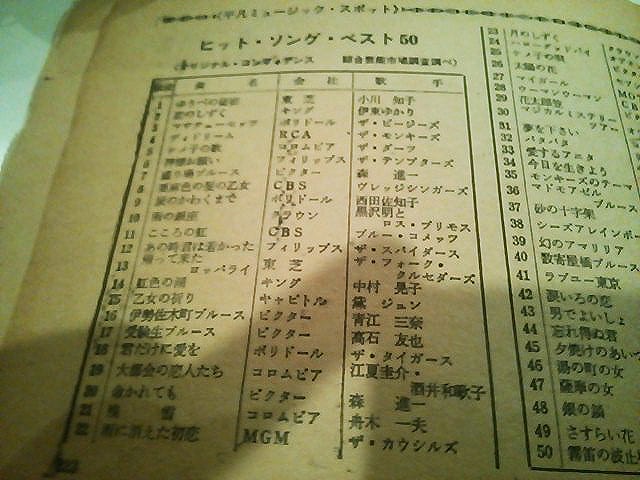 〈平凡ミュージック・スポット〉
ヒット・ソング・ベスト50
(オリジナル・コンフィデンス 綜合芸能市場調査調べ)
順位 曲 名 会 社 歌 手
1 ゆうべの秘密 東 芝 小川 知子
2 恋のしずく キング 伊東ゆかり
3 マサチューセッツ ポリドール ザ・ビージーズ
4 デイドリーム RCA ザ・モンキーズ
5 ケメ子の歌 コロムビア ザ・ダーツ
6 神様お願い フィリップス ザ・テンプターズ
7 盛り場ブルース ビクター 森 進一
8 亜麻色の髪の乙女 CBS ヴレッジシンガーズ
9 涙のかわくまで ポリドール 西田佐知子
10 雨の銀座 クラウン 黒沢明と
ロス・プリモス
11 こころの虹 CBS ブルー・コメッツ
12 あの時君は若かった フィリップス ザ・スパイダース
13 帰って来た
ヨッパライ 東 芝 ザ・フォーク・
クルセダーズ
14 虹色の湖 キング 中村 晃子
15 乙女の祈り キャピトル 黛 ジュン
16 伊勢佐木町ブルース ビクター 青江 三奈
17 受験生ブルース ビクター 高石 友也
18 君だけに愛を ポリドール ザ・タイガース
19 大都会の恋人たち コロムビア 江夏圭介・
酒井和歌子
20 命かれても ビクター 森 進一
21 残 雪 コロムビア 舟木 一夫
22 雨に消えた初恋 MGM ザ・カウシルズ
23 月のしずく
24 ハローグッドバイ
25 ケメ子の歌
26 太陽の花
27 マイガール
28 ウーマンウーマン
29 花太郎笠
30 マジカルミステリー
ツアー
31 夢な下さい
32 バタバタ
33 愛するアニタ
34 今日を生きよう
35 モンキーズのテーマ
36 マドモアゼル
ブルース
37 砂の十字架
38 シーズアレインボー
39 幻のアマリリア
40 数寄屋橋ブルース
41 ラブユー東京
42 いろの恋
43 男でよいしょ
44 忘れ得ぬ君
45 夕焼けのあいつ
46 湯の町の女
47 薩摩の女
48 銀の鎖
49 さすらい花
50 霧笛の波止場